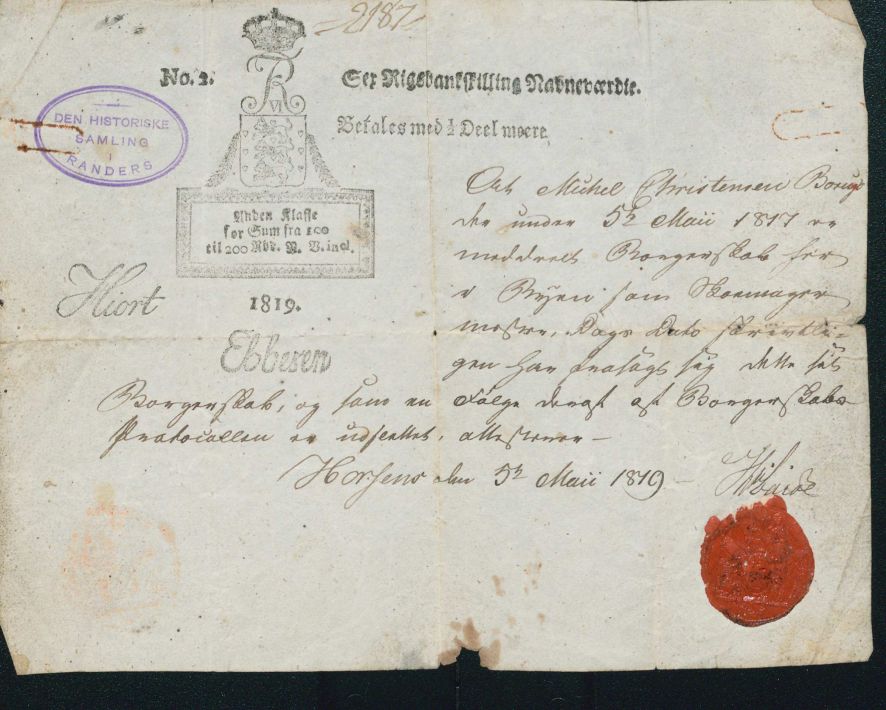 2187
No. 2.
Sex Rigsbankskilling Navneværdie.
Betales med ½ Deel meere
VI
DEN HISTORISKE
SAMLING
I
RANDERS
Anden Klasse
for Sum fra 100
til 200 Rbd. N. V. incl.
Hiort
1819.
Ebbesen
At Michel Christensen Borup
der under 5te Maii 1817 er
meddeelt Borgerskab her
i Byen som Skoemager
mester, Dags Dato skrivtli-
gen har frasagt sig dette sit
Borgerskab, og som en Følge deraf af Borgerskabs
Protocollen er udslettet, attesterer –
Horsens den 5te Maii 1819 –